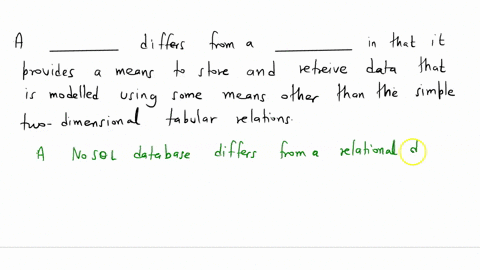 A ________ differs from a ________ in that it
provides a means to store and retreive data that
is modelled using some means other than the simple
two-dimensional tabular relations.
A NoSQL database differs from a relational d